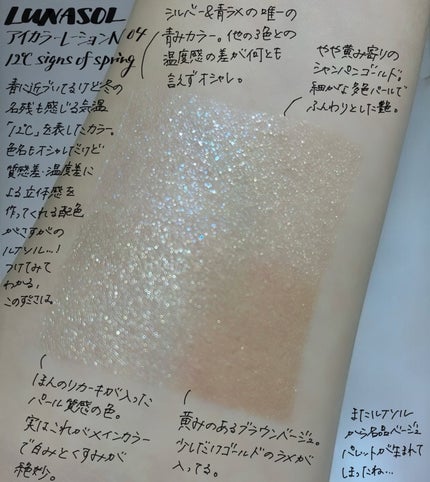 LUNASOL
アイカラーレーションN 04
12℃ signs of spring
春に近づいてるけど冬の
名残も感じる気温
「12℃」を表したカラー。
色名もオシャレだけど
質感差・温度差に
よる立体感を
作ってくれる配色
がさすがの
ルナソル…!
つけてみて
わかる、
このすごさは。
シルバー&青ラメの唯一の
青みカラー。他の3色との
温度感の差が何とも
言えずオシャレ。
やや黄み寄りの
シャンパンゴールド。
細かな多色パールで
ふんわりとした艶。
ほんのりカーキが入った
パール質感の色。
実はこれがメインカラー
で白みとくすみが
絶妙。
黄みのあるブラウンベージュ。
少しだけゴールドのラメが
入ってる。
またルナソル
から名品ベージュ
パレットが生まれて
しまったね…